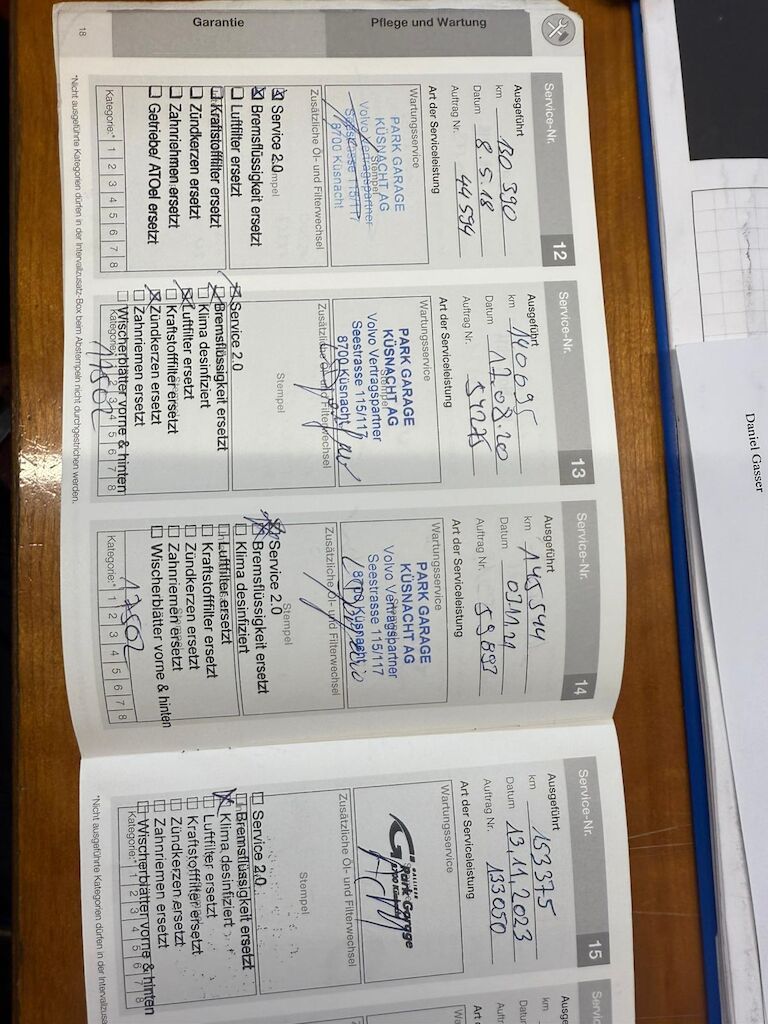 Garantie
Pflege und Wartung
18
Service-Nr. 12
Ausgeführt
km 130 390
Datum 8.5.18
Auftrag Nr. 44594
Art der Serviceleistung
Wartungsservice
PARK GARAGE
KÜSNACHT AG
Volvo Vertragspartner
Seestrasse 115/117
8700 Küsnacht
Stempel
Zusätzliche Öl- und Filterwechsel
Service 2.0
Bremsflüssigkeit ersetzt
Luftfilter ersetzt
Kraftstofffilter ersetzt
Zündkerzen ersetzt
Zahnriehmen ersetzt
Getriebe/ ATOel ersetzt
Kategorie:* 1 2 3 4 5 6 7 8
Service-Nr. 13
Ausgeführt
km 140095
Datum 17.08.20
Auftrag Nr.
Art der Serviceleistung
Wartungsservice
PARK GARAGE
KÜSNACHT AG
Volvo Vertragspartner
Seestrasse 115/117
8700 Küsnacht
Zusätzliche Öl- und Filterwechsel
Stempel
Service 2.0
Bremsflüssigkeit ersetzt
Klima desinfiziert
Luftfilter ersetzt
Kraftstofffilter ersetzt
Zündkerzen ersetzt
Zahnriemen ersetzt
Wischerblätter vorne & hinten
Kategorie:* 1 2 3 4 5 6 7 8
Service-Nr. 14
Ausgeführt
km 145544
Datum
Auftrag Nr. 59893
Art der Serviceleistung
Wartungsservice
PARK GARAGE
KÜSNACHT AG
Volvo Vertragspartner
Seestrasse 115/117
8700 Küsnacht
Zusätzliche Öl- und Filterwechsel
Stempel
Service 2.0
Bremsflüssigkeit ersetzt
Klima desinfiziert
Luftfilter ersetzt
Kraftstofffilter ersetzt
Zündkerzen ersetzt
Zahnriemen ersetzt
Wischerblätter vorne & hinten
Kategorie:* 1 2 3 4 5 6 7 8
*Nicht ausgeführte Kategorien dürfen in der Intervallzusatz-Box beim Abstempeln nicht durchgestrichen werden.
Service-Nr. 15
Ausgeführt
km 153375
Datum 13.11.2023
Auftrag Nr. 133050
Art der Serviceleistung
Wartungsservice
Park Garage
Zusätzliche Öl- und Filterwechsel
Stempel
Service 2.0
Bremsflüssigkeit ersetzt
Klima desinfiziert
Luftfilter ersetzt
Kraftstofffilter ersetzt
Zündkerzen ersetzt
Zahnriemen ersetzt
Wischerblätter vorne & hinten
Kategorie:* 1 2 3 4 5 6 7 8
*Nicht ausgeführte Kategorien dürfen in der Intervallzusa
Servic
Ausge
km
Datur
Auft
Art
Wa
Zus
Daniel Gasser